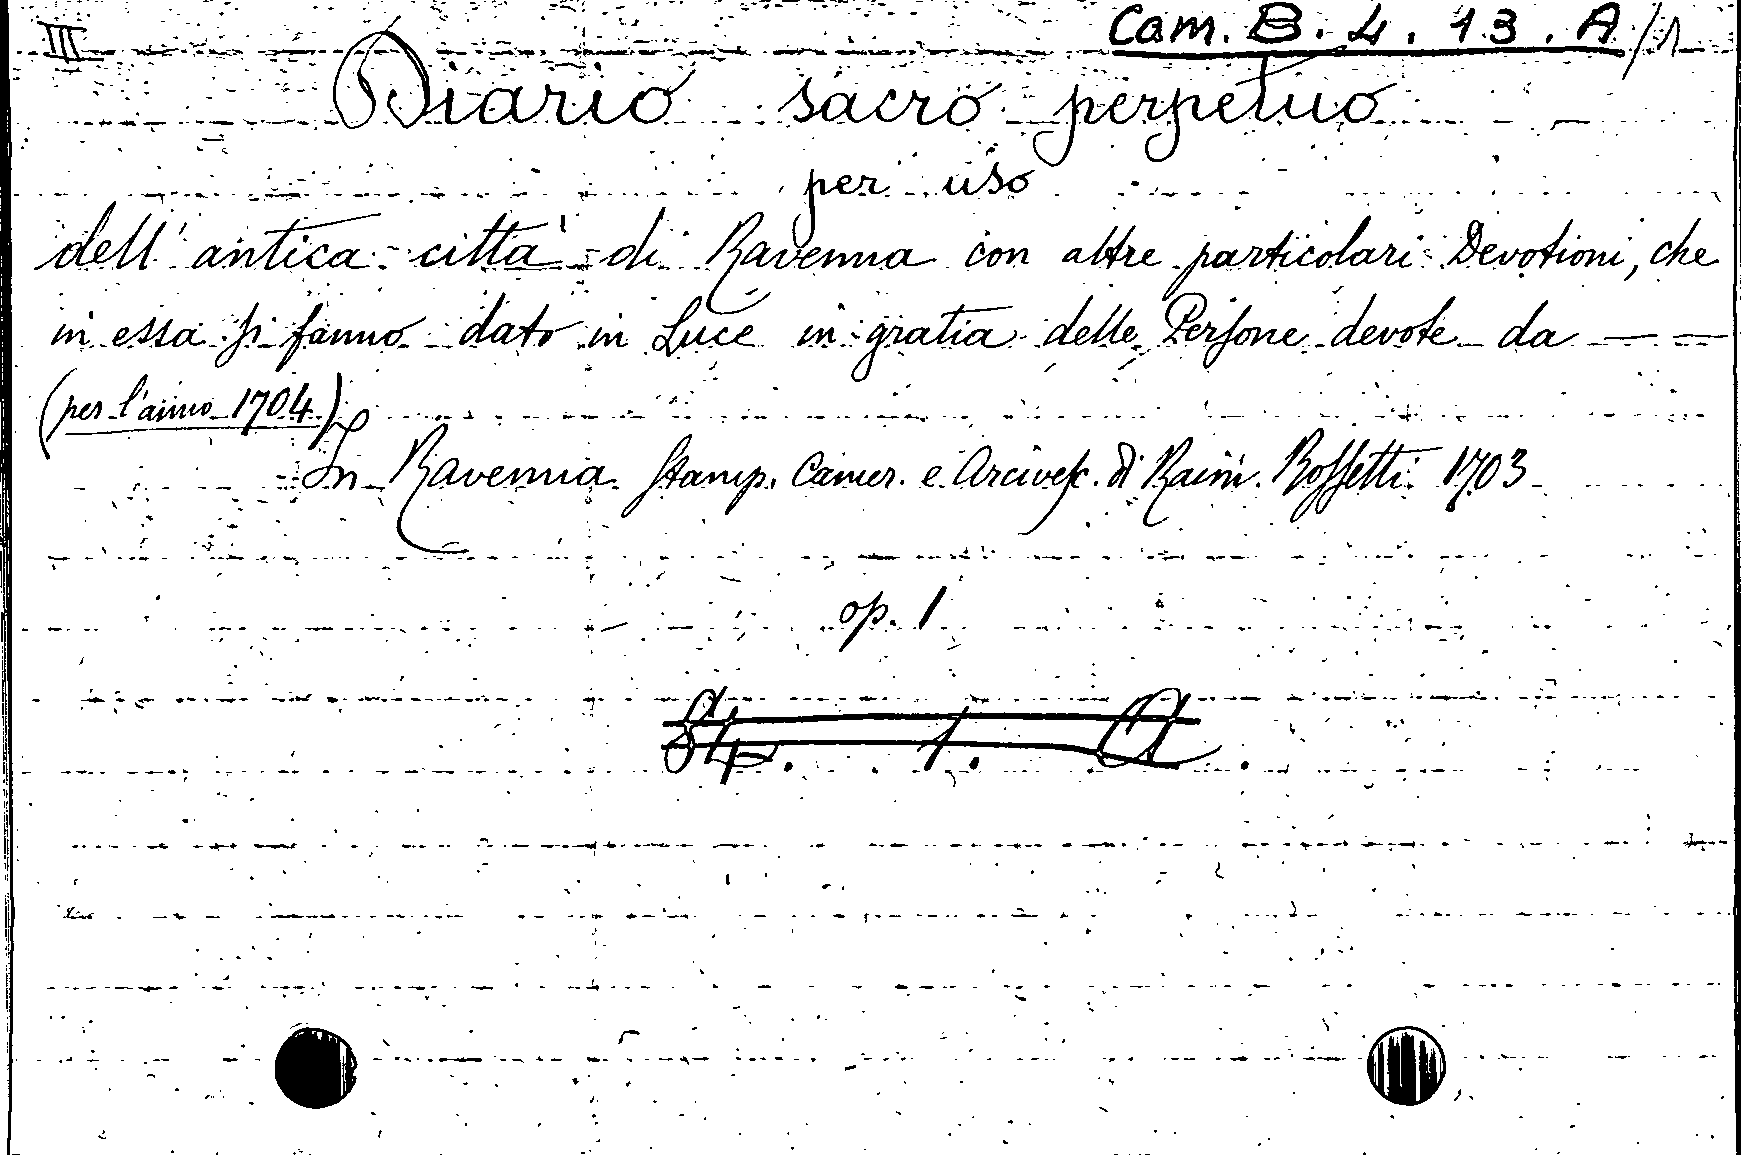 III
Cam. B. 4. 13. A/1
Diario sacro perpetuo
per uso
dell'antica città di Ravenna con altre particolari Devotioni, che
in essa si fanno dato in Luce in gratia delle Persone devote da — —
(per l'anno 1704)
In Ravenna Stamp. Camer. e Arcivesc. di Raim. Rossetti 1703
op. 1
84. 1. A.